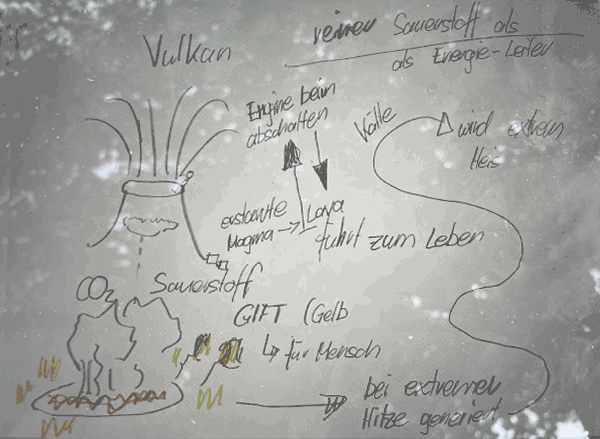 Vulkan
reiner Sauerstoff als
als Energie-Leiter
Engine beim
abschalten
Kälte
wird extrem
Heis
erstarrte
Magma
Lava
führt zum Leben
CO2
Sauerstoff
GIFT (Gelb
für Mensch
bei extremer
Hitze generiert